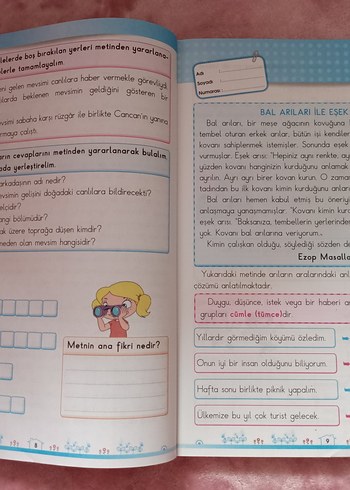 lelerde boş bırakılan yerleri metinden yararlana-
lerle tamamlayalım.
eri gelen mevsimi canlılara haber vermekle görevliydi.
larda beklenen mevsimin geldiğini gösteren bir
evsimi sabaha karşı rüzgâr ile birlikte Cancan'ın yanına
ırmaya çalıştı.
rın cevaplarını metinden yararlanarak bulalım,
ada yerleştirelim.
arkadaşının adı nedir?
evsimin gelişini doğadaki canlılara bildirecekti?
elcidir?
angi bölümüdür?
ak üzere toprağa düşen kimdir?
neden olan mevsim hangisidir?
Metnin ana fikri nedir?
8
Adı :
Soyadı :
Numarası :
BAL ARILARI İLE EŞEK
Bal arıları, bir meşe ağacının kovuğuna
tembel oturan erkek arılar, bütün işi kendiler
kovanı sahiplenmek istemişler. Sonunda eşek
vurmuşlar. Eşek arısı: "Hepiniz aynı renkte, ay
yüzden kovanı hanginizin kurduğunu anlamak
ayrılın. Ayrı ayrı birer kovan kurun. O zaman
tadından bu ilk kovanı kimin kurduğunu anları
Bal arıları hemen kabul etmiş bu öneriyi
anlaşmaya yanaşmamışlar. "Kovanı kimin kurd
eşek arısı. "Baksanıza, tembellerin yerlerinden
yok. Kovanı bal arılarına veriyorum..."
Kimin çalışkan olduğu, söylediği sözden de
Ezop Masalla
Yukarıdaki metinde arıların aralarındaki anl
çözümü anlatılmaktadır.
Duygu, düşünce, istek veya bir haberi an
grupları cümle (tümce)dir.
Yıllardır görmediğim köyümü özledim.
Onun iyi bir insan olduğunu biliyorum.
Hafta sonu birlikte piknik yapalım.
Ülkemize bu yıl çok turist gelecek.
9